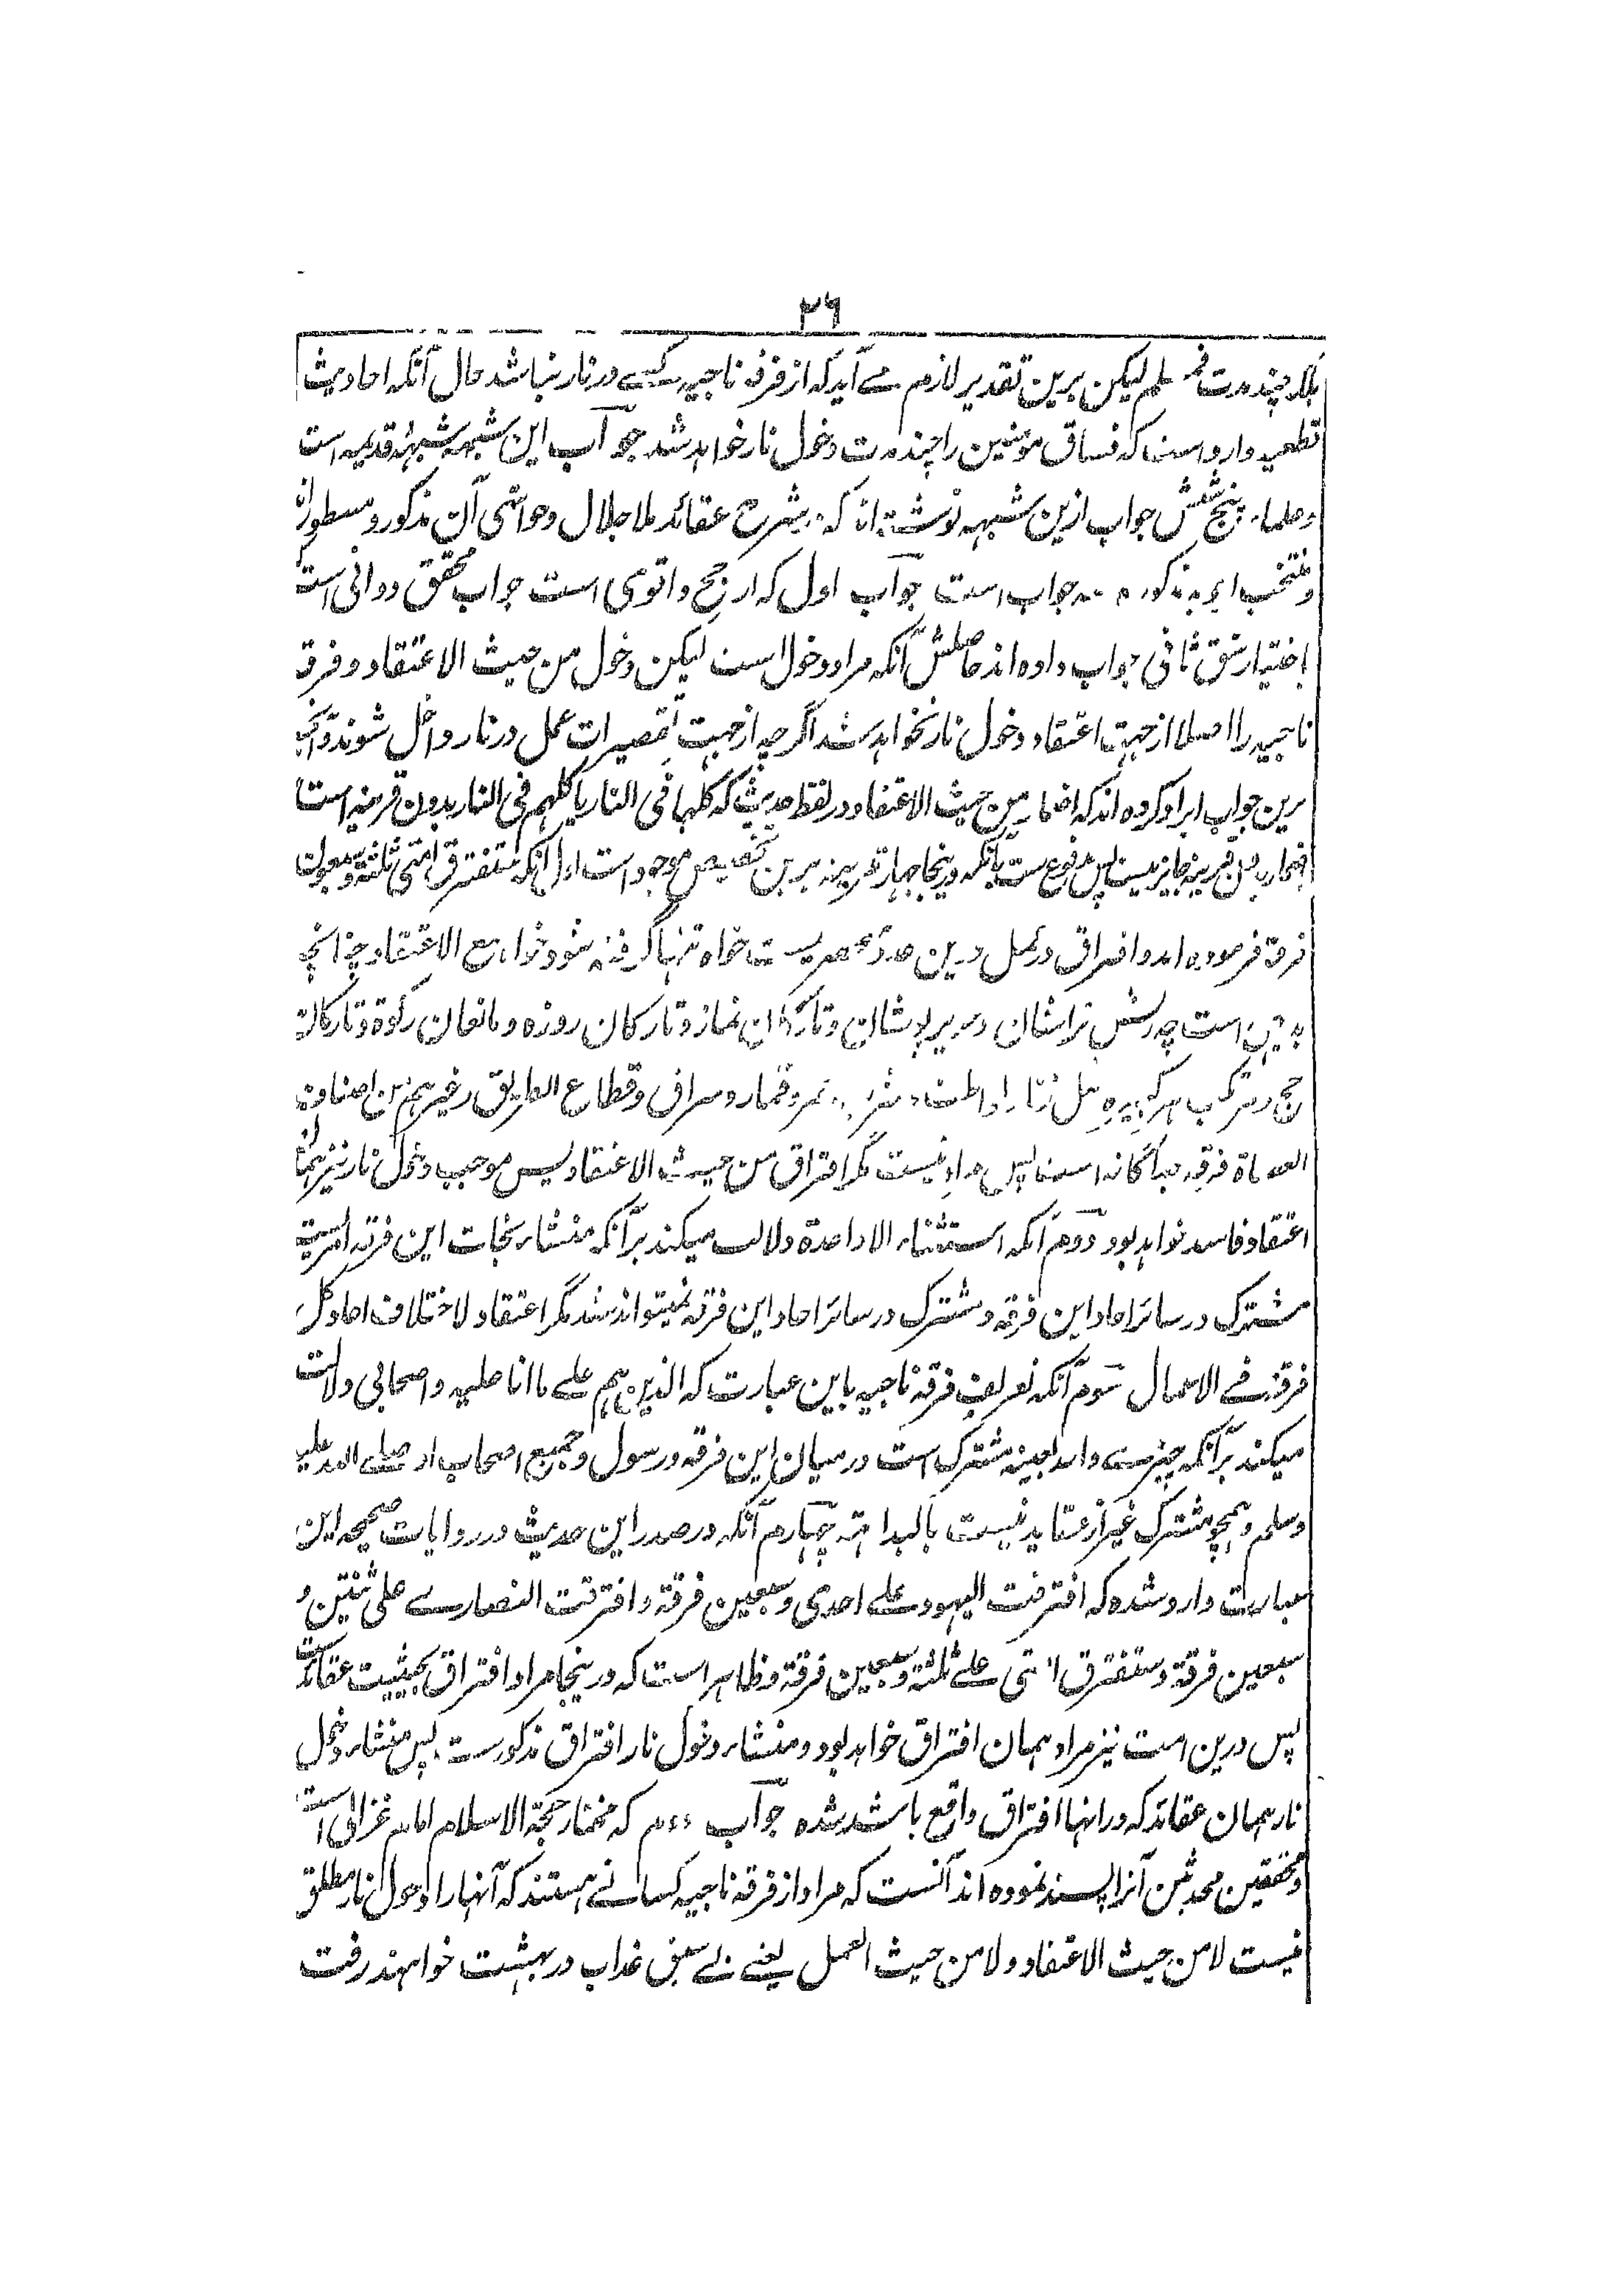 ۲۶
چند مدت فمسلم لیکن برین تقدیر لازم مے آید که از فرقه ناجیه کسے در نار نباشد حال آنکه احادیث
قطعیه وارد است که فساق مؤمنین را چند مدت دخول نار خواهد شد جواب این شبهه شبهۂ قدیمه است
و علماء پنج شش جواب ازین شبهه نوشته اند که در شرح عقائد ملا جلال و حواشی آن مذکور و مسطور اند
و منتخب اجوبه مذکوره سه جواب است جواب اول که ارجح و اقوی است جواب محقق دوانی است که
باختیار شق ثانی جواب داده اند حاصلش آنکه مراد دخول است لیکن دخول من حیث الاعتقاد و فرقه
ناجیه را اصلا از جهت اعتقاد دخول نار نخواهد شد اگرچه از جهت تقصیرات عمل در نار داخل شوند و آنچه
برین جواب ایراد کرده اند که اضمار من حیث الاعتقاد در لفظ حدیث که کلها فی النار یا کلهم فی النار بدون قرینه است
اضمار بدون قرینه جایز نیست پس مدفوع ست بآنکه درینجا چهار قرینه برین تخصیص موجود است اول آنکه ستفترق امتی ثلثة و سبعون
فرقة فرموده اند و افتراق در عمل درین عدد منحصر نیست خواه تنها گرفته شود خواه مع الاعتقاد چنانچه
بدیهی است چه ریش تراشان و حریر پوشان و تارکان نماز و تارکان روزه و مانعان زکوة و تارکان
حج و مرتکب هر کبیره مثل زنا و لواطت و شرب خمر و قمار و سراق و قطاع الطریق و غیرهم من اصناف
العصاة فرقه جداگانه است پس مراد نیست مگر افتراق من حیث الاعتقاد پس موجب دخول نار نیز همان
اعتقاد فاسد خواهد بود دوم آنکه استثناء الا واحدة دلالت میکند بر آنکه منشاء نجات این فرقه امریست
مشترک در سائر احاد این فرقه و مشترک در سائر احاد این فرقه نمیتواند شد مگر اعتقاد لاختلاف احاد کل
فرقة فے الاعمال سوم آنکه تعریف فرقه ناجیه باین عبارت که الذین هم علے ما انا علیه و اصحابی دلالت
میکند بر آنکه چیزے واحد بعینه مشترک است در میان این فرقه و رسول و جمیع اصحاب او صلے الله علیه
وسلم و همچو مشترک غیر از عقاید نیست بالبداهة چهارم آنکه در صدر این حدیث در روایات صحیحه این
عبارت وارد شده که افترقت الیهود علے احدی و سبعین فرقة و افترقت النصارے علی ثنتین و
سبعین فرقة و ستفترق امتی علے ثلثة و سبعین فرقة و ظاهر است که درینجا مراد افتراق بحیثیت عقائد ست
پس درین امت نیز مراد همان افتراق خواهد بود و منشاء دخول نار افتراق مذکورست پس منشاء دخول
نار همان عقائد که در انها افتراق واقع باشد شده جواب دوم که مختار حجة الاسلام امام غزالی است
و محققین محدثین آنرا پسند نموده اند آنست که مراد از فرقه ناجیه کسانے هستند که آنها را دخول نار مطلق
نیست لا من حیث الاعتقاد و لا من حیث العمل یعنے بے سبق عذاب در بهشت خواهند رفت